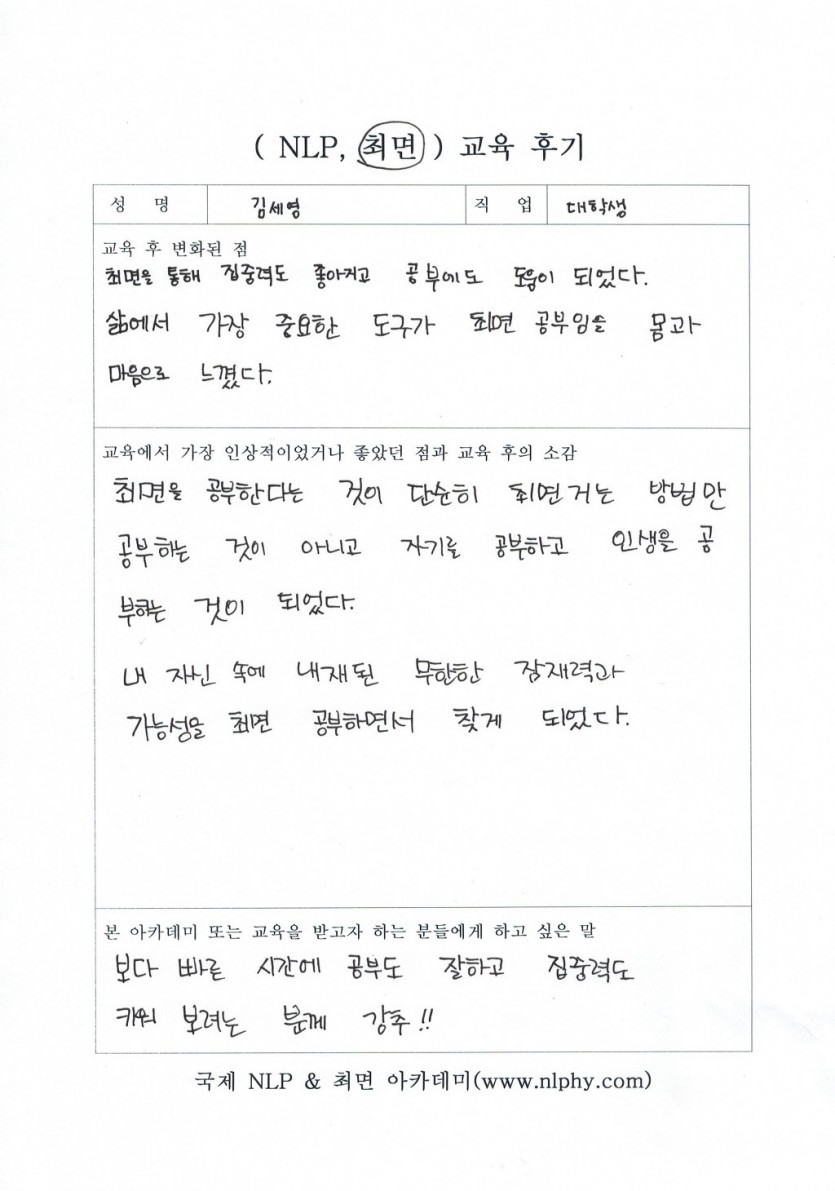 ( NLP, 최면 ) 교육 후기
성 명 김세영 직 업 대학생
교육 후 변화된 점
최면을 통해 집중력도 좋아지고 공부에도 도움이 되었다.
삶에서 가장 중요한 도구가 최면 공부임을 몸과
마음으로 느꼈다.
교육에서 가장 인상적이었거나 좋았던 점과 교육 후의 소감
최면을 공부한다는 것이 단순히 최면거는 방법만
공부하는 것이 아니고 자기를 공부하고 인생을 공
부하는 것이 되었다.
내 자신 속에 내재된 무한한 잠재력과
가능성을 최면 공부하면서 찾게 되었다.
본 아카데미 또는 교육을 받고자 하는 분들에게 하고 싶은 말
보다 빠른 시간에 공부도 잘하고 집중력도
키워 보려는 분께 강추!!
국제 NLP & 최면 아카데미(www.nlphy.com)